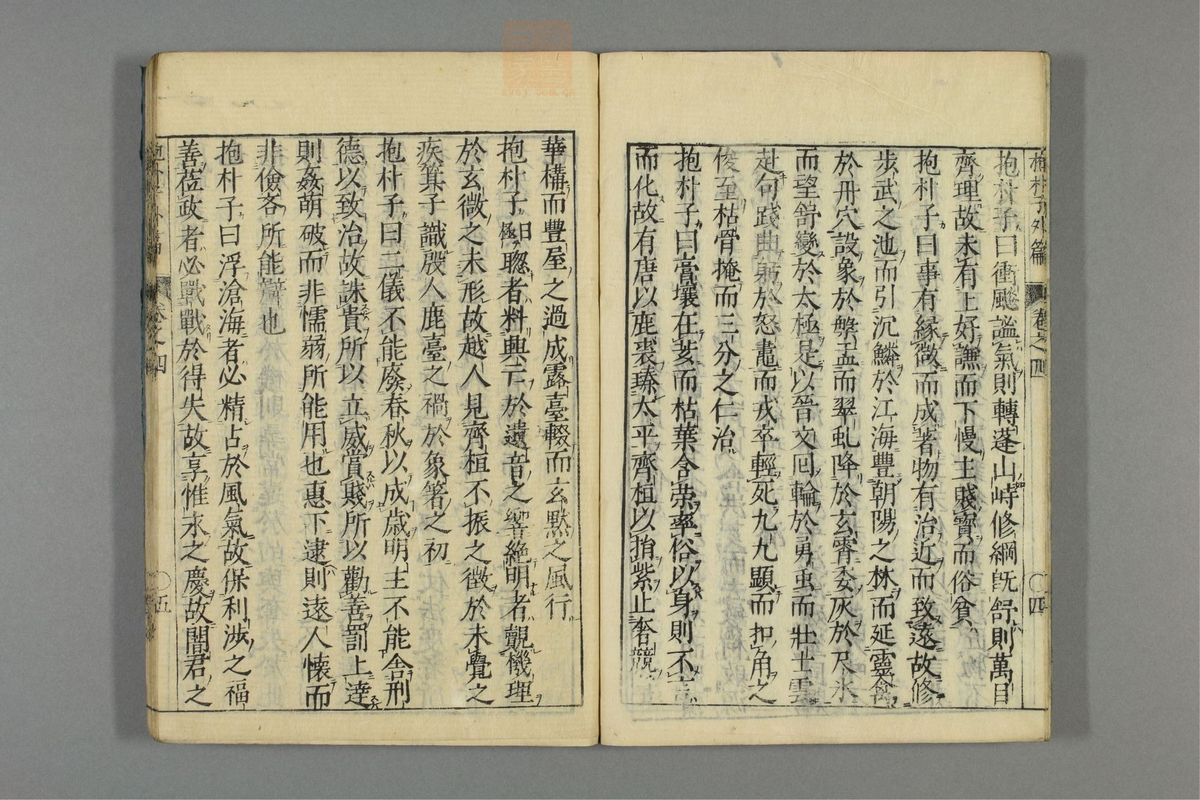 抱朴子外篇 卷之四 〇四
抱朴子曰衝飈謐氣則轉蓬山峙修綱既舒則萬目
齊理故未有上好謙而下慢主賤寶而俗貧
抱朴子曰事有緣微而成著物有治近而致遠故修
步武之池而引沉鱗於江海豊朝陽之林而延靈禽
於丹穴設象於槃盂而翠虬降於玄霄委灰於尺水
而望舒變於太極是以晉文回輪於勇虫而壯士雲
赴句踐曲躬於怒鼃而戎卒輕死九九顯而扣角之
俊至枯骨掩而三分之仁洽
抱朴子曰膏壤在荄而枯葉含榮率俗以身則不言
而化故有唐以鹿裘臻太平齊桓以捐紫止奢競
華構而豊屋之過成露臺輟而玄默之風行
抱朴子曰極聰者料興亡於遺音之響絶明者覿機理
於玄微之未形故越人見齊桓不振之徵於未覺之
疾箕子識殷人鹿臺之禍於象箸之初
抱朴子曰二儀不能廢春秋以成歲明主不能舍刑
德以致治故誅貴所以立威賞賤所以勸善罰上達
則姦萌破而非懦弱所能用也惠下逮則遠人懷而
非儉吝所能辦也
抱朴子曰浮滄海者必精占於風氣故保利涉之福
善莅政者必戰戰於得失故享惟永之慶故闇君之
卷之四 〇五